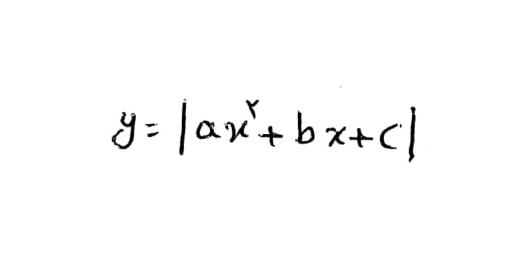 y = |ax^۲ + bx + c|